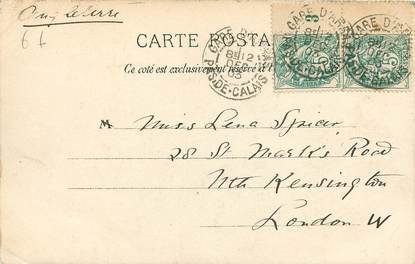 Angleterre
CARTE POSTA
Ce coté est exclusivement réservé à
GARE D'AR
PAS-DE-CALAIS
3
M Miss Lena Spicer
28 St Mark's Road
Nth Kensington
London W